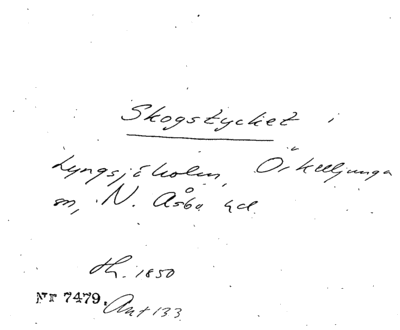 Skogstycket i
Lyngsjöholm, Örkelljunga
sn, N. Åsbo hd.
th. 1850
Nr 7479. Ant 133